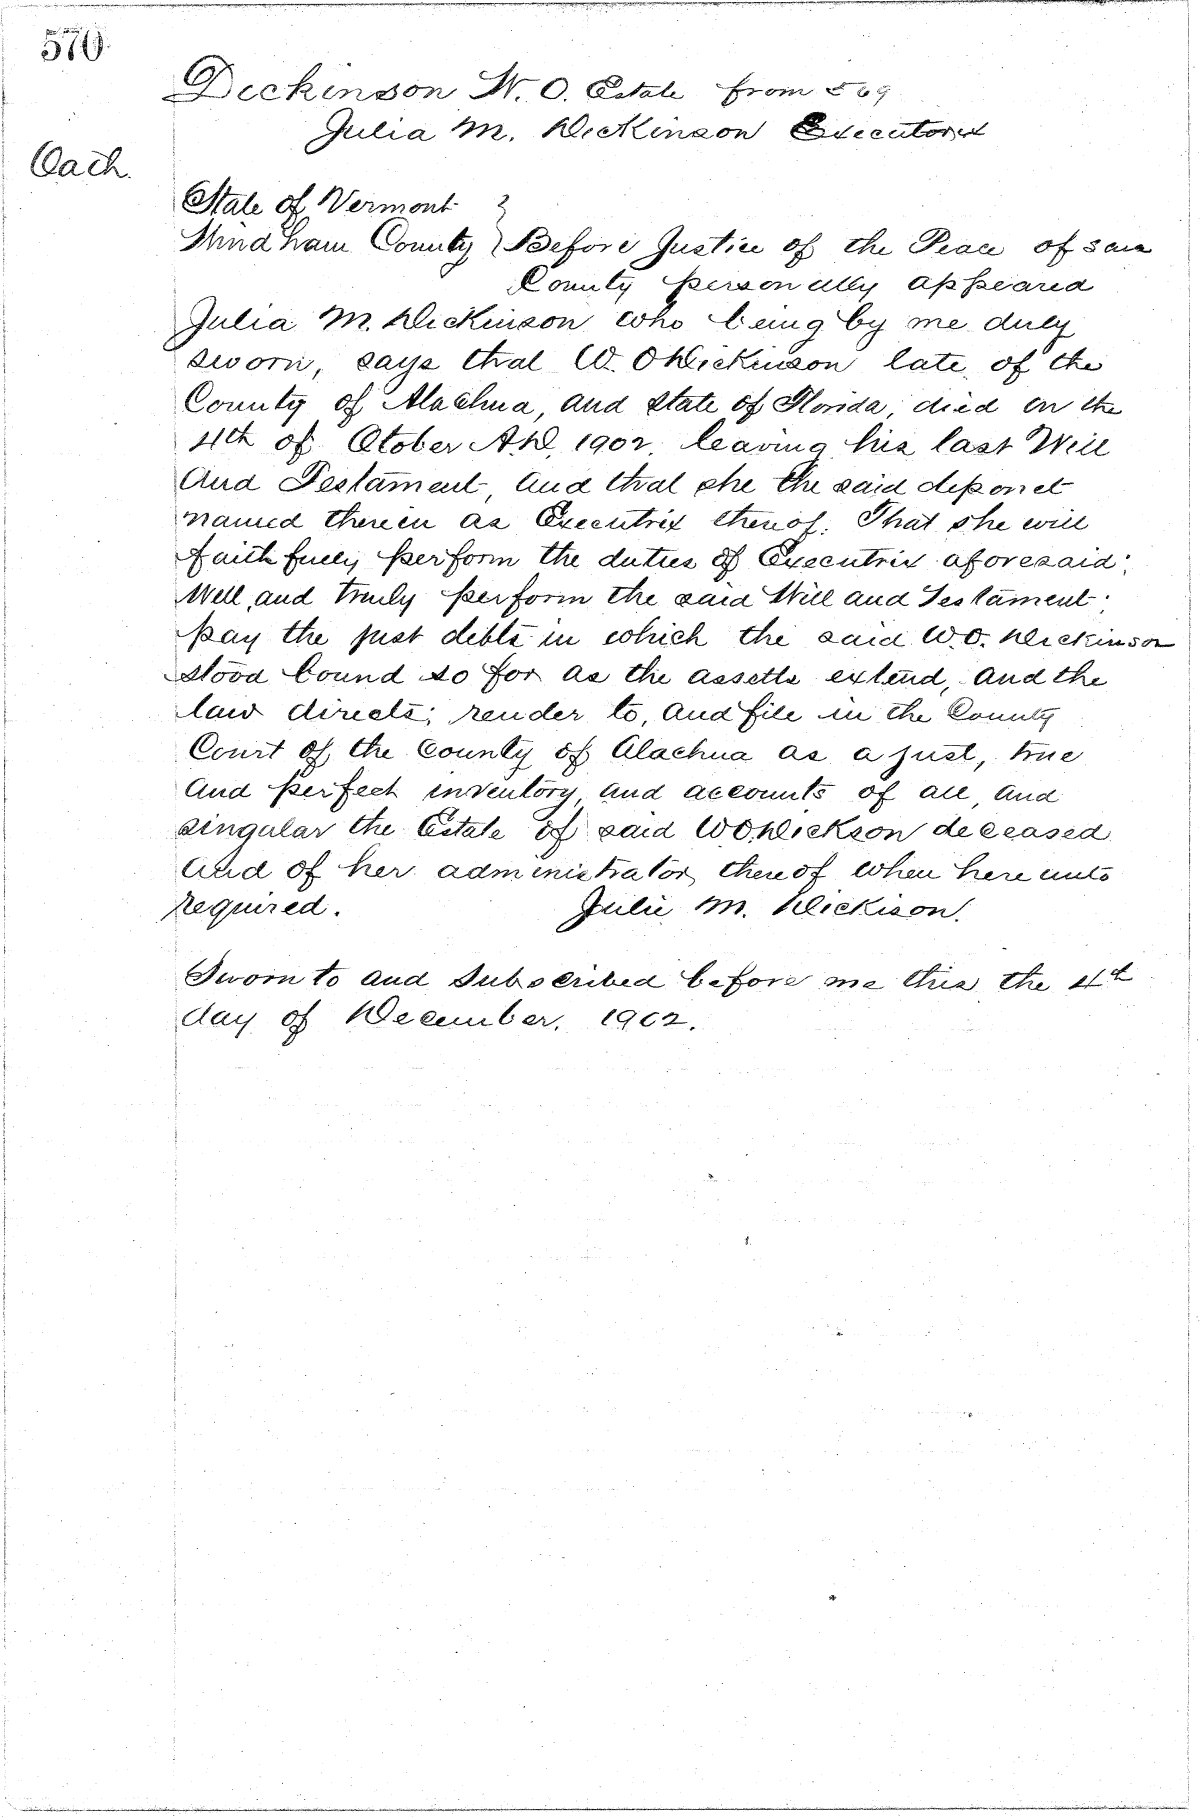 570
Dickinson W. O. Estate from 569
Julia M. Dickinson Executorix
Oath.
State of Vermont
Windham County } Before Justice of the Peace of said
County personally appeared
Julia M. Dickinson who being by me duly
sworn, says that W. O Dickinson late of the
County of Alachua, and State of Florida, died on the
4th of Otober A.D. 1902. leaving his last Will
And Testament, and that she the said deponet
named therein as Executrix thereof. That she will
faithfully perform the duties of Executrix aforesaid;
Well, and truly perform the said Will and Testament;
pay the just debts in which the said W.O. Dickinson
stood bound so for as the assetts extend, and the
law directs; render to, and file in the County
Court of the County of Alachua as a just, true
and perfect inventory, and accounts of all, and
singular the Estate of said W.O. Dickson deceased
and of her administrator, thereof when here unto
required. Julie M. Dickison.
Sworn to and Subscribed before me this the 4th
day of December, 1902.